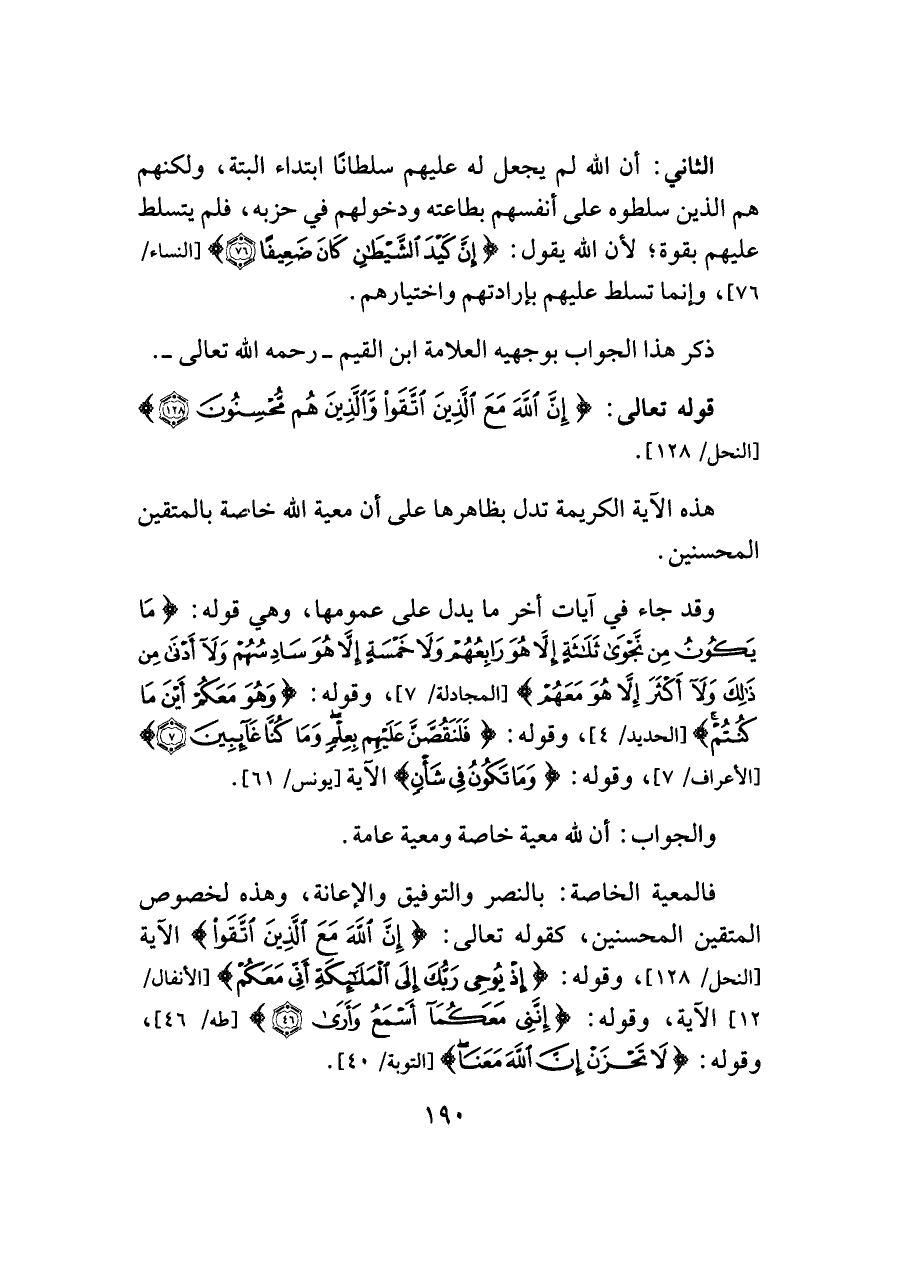 الثاني: أن الله لم يجعل له عليهم سلطانًا ابتداء البتة، ولكنهم
هم الذين سلطوه على أنفسهم بطاعته ودخولهم في حزبه، فلم يتسلط
عليهم بقوة؛ لأن الله يقول: ﴿ إِنَّ كَيْدَ ٱلشَّيْطَٰنِ كَانَ ضَعِيفًا ۝٧٦﴾ [النساء/
٧٦]، وإنما تسلط عليهم بإرادتهم واختيارهم.
ذكر هذا الجواب بوجهيه العلامة ابن القيم ـ رحمه الله تعالى ـ.
قوله تعالى: ﴿ إِنَّ ٱللَّهَ مَعَ ٱلَّذِينَ ٱتَّقَوا۟ وَّٱلَّذِينَ هُم مُّحْسِنُونَ ۝١٢٨ ﴾
[النحل/ ١٢٨].
هذه الآية الكريمة تدل بظاهرها على أن معية الله خاصة بالمتقين
المحسنين.
وقد جاء في آيات أخر ما يدل على عمومها، وهي قوله: ﴿ مَا
يَكُونُ مِن نَّجْوَىٰ ثَلَٰثَةٍ إِلَّا هُوَ رَابِعُهُمْ وَلَا خَمْسَةٍ إِلَّا هُوَ سَادِسُهُمْ وَلَآ أَدْنَىٰ مِن
ذَٰلِكَ وَلَآ أَكْثَرَ إِلَّا هُوَ مَعَهُمْ ﴾ [المجادلة/ ٧]، وقوله: ﴿ وَهُوَ مَعَكُمْ أَيْنَ مَا
كُنتُمْ ۚ﴾ [الحديد/ ٤]، وقوله: ﴿ فَلَنَقُصَّنَّ عَلَيْهِم بِعِلْمٍ ۖ وَمَا كُنَّا غَآئِبِينَ ۝٧﴾
[الأعراف/ ٧]، وقوله: ﴿ وَمَا تَكُونُ فِى شَأْنٍ﴾ الآية [يونس/ ٦١].
والجواب: أن لله معية خاصة ومعية عامة.
فالمعية الخاصة: بالنصر والتوفيق والإعانة، وهذه لخصوص
المتقين المحسنين، كقوله تعالى: ﴿ إِنَّ ٱللَّهَ مَعَ ٱلَّذِينَ ٱتَّقَوا۟ ﴾ الآية
[النحل/ ١٢٨]، وقوله: ﴿ إِذْ يُوحِى رَبُّكَ إِلَى ٱلْمَلَٰٓئِكَةِ أَنِّى مَعَكُمْ ﴾ [الأنفال/
١٢] الآية، وقوله: ﴿ إِنَّنِى مَعَكُمَآ أَسْمَعُ وَأَرَىٰ ۝٤٦ ﴾ [طه/ ٤٦]،
وقوله: ﴿ لَا تَحْزَنْ إِنَّ ٱللَّهَ مَعَنَا ۖ﴾ [التوبة/ ٤٠].
١٩٠